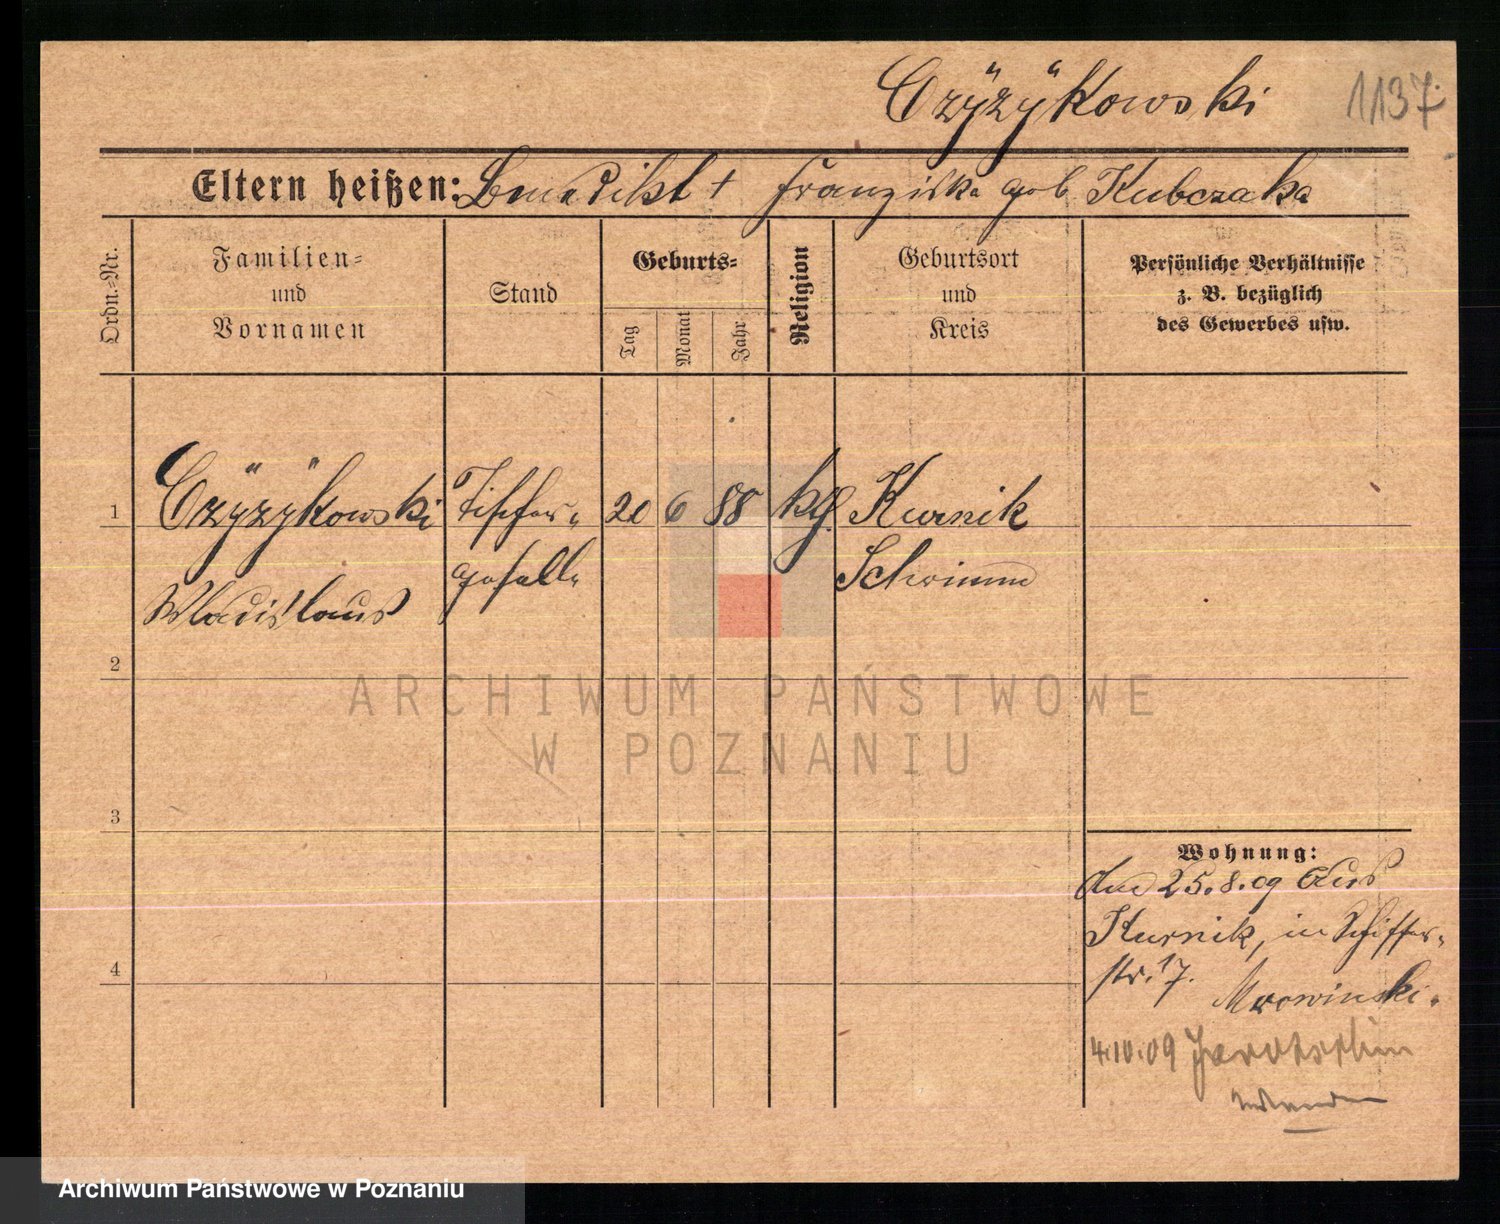 Czÿzÿkowski 1137.
Eltern heißen: Benedikt + Franziska geb Kubczaka
Ordn.-Nr.
Familien-
und
Vornamen
Stand
Geburts-
Tag
Monat
Jahr
Religion
Geburtsort
und
Kreis
Persönliche Verhältnisse
z. B. bezüglich
des Gewerbes usw.
1 Czÿzÿkowski Tischler- 20 6 88 kth. Kurnik
geselle Schrimm
Wladislaus
2
ARCHIWUM PAŃSTWOWE
W POZNANIU
3
Wohnung:
den 25.8.09 aus
Kurnik, in Schiffer-
str. 17.
Mrowinski.
4
4.10.09 Jarotschin
Archiwum Państwowe w Poznaniu